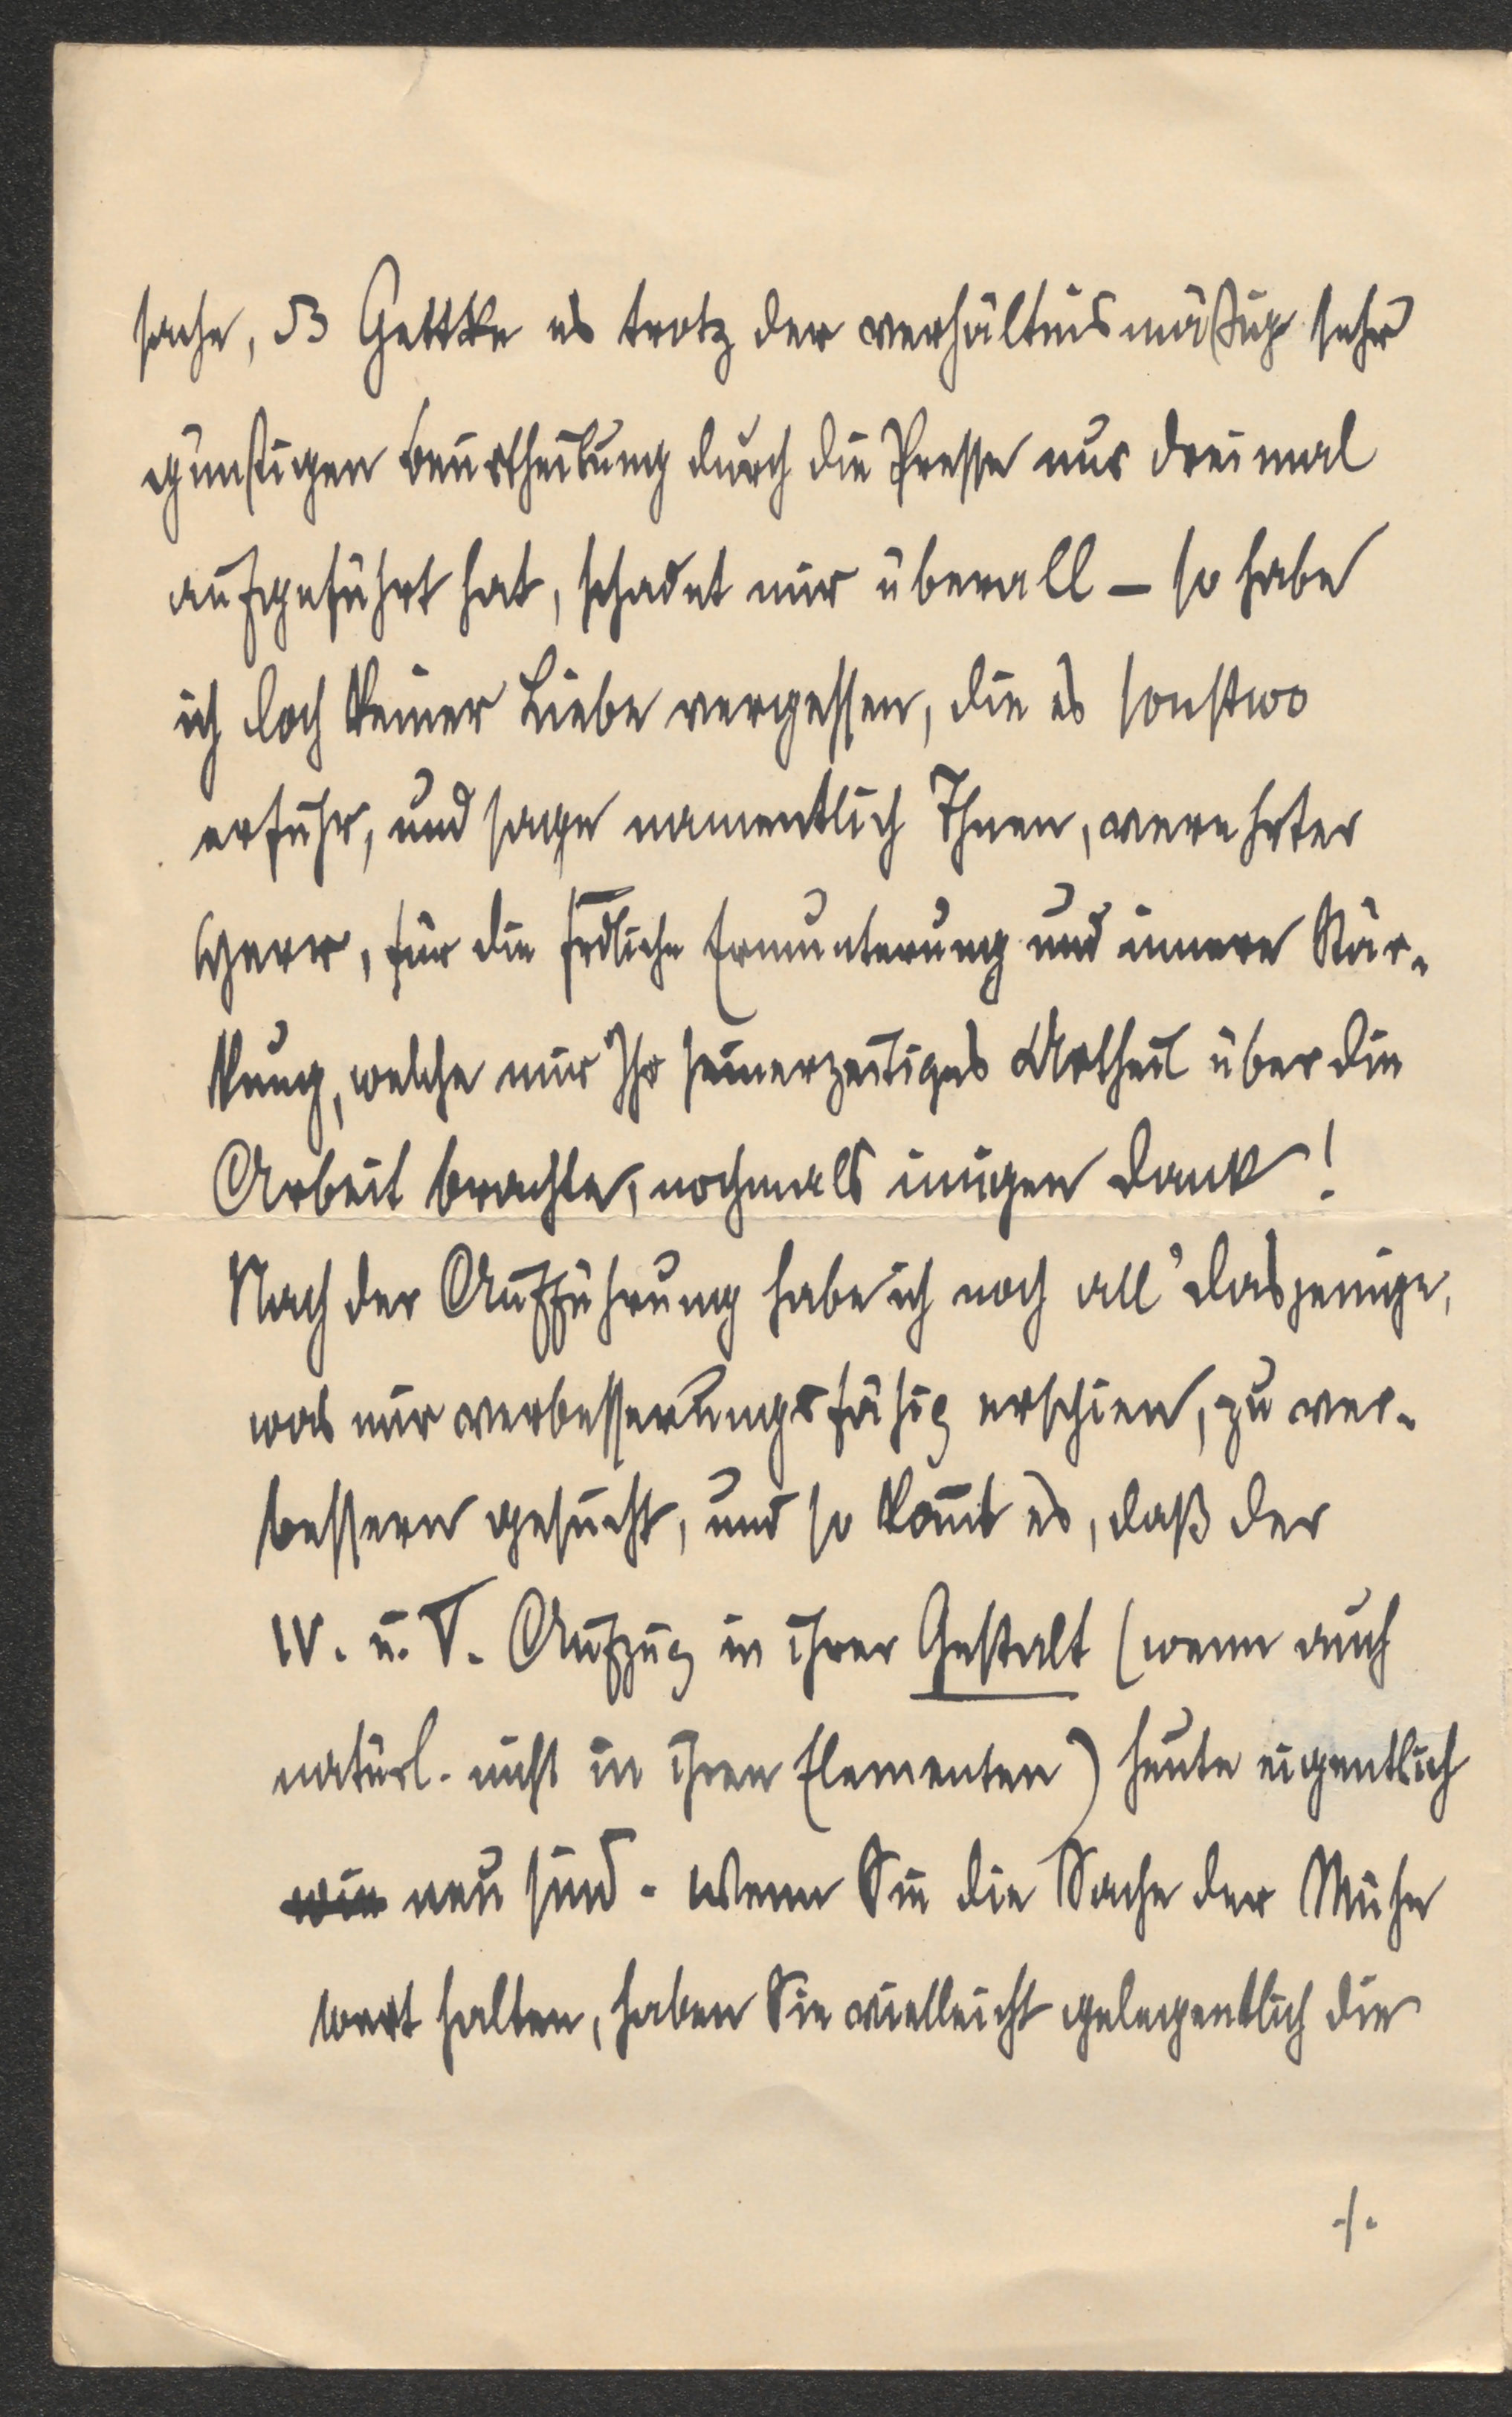 sache, dß Gettke es trotz der verhältnismäßig sehr
günstigen Beurtheilung durch die Presse nur dreimal
aufgeführt hat, schadet mir überall – so habe
ich doch keiner Liebe vergessen, die es sonstwo
erfuhr, und sage namentlich Ihnen, verehrter
Herr, für die frdliche Ermunterung und innere Stär-
kung, welche mir Ihr seinerzeitiges Urtheil über die
Arbeit brachte, nochmals innigen Dank!
Nach der Aufführung habe ich noch all' dasjenige,
was mir verbesserungsfähig erschien, zu ver-
bessern gesucht, und so kom̅t es, daß der
IV. u. V. Aufzug in ihrer Gestalt (wenn auch
natürl. nicht in ihren Elementen) heute eigentlich
wie neu sind. Wenn Sie die Sache der Mühe
wert halten, haben Sie vielleicht gelegentlich die
./.